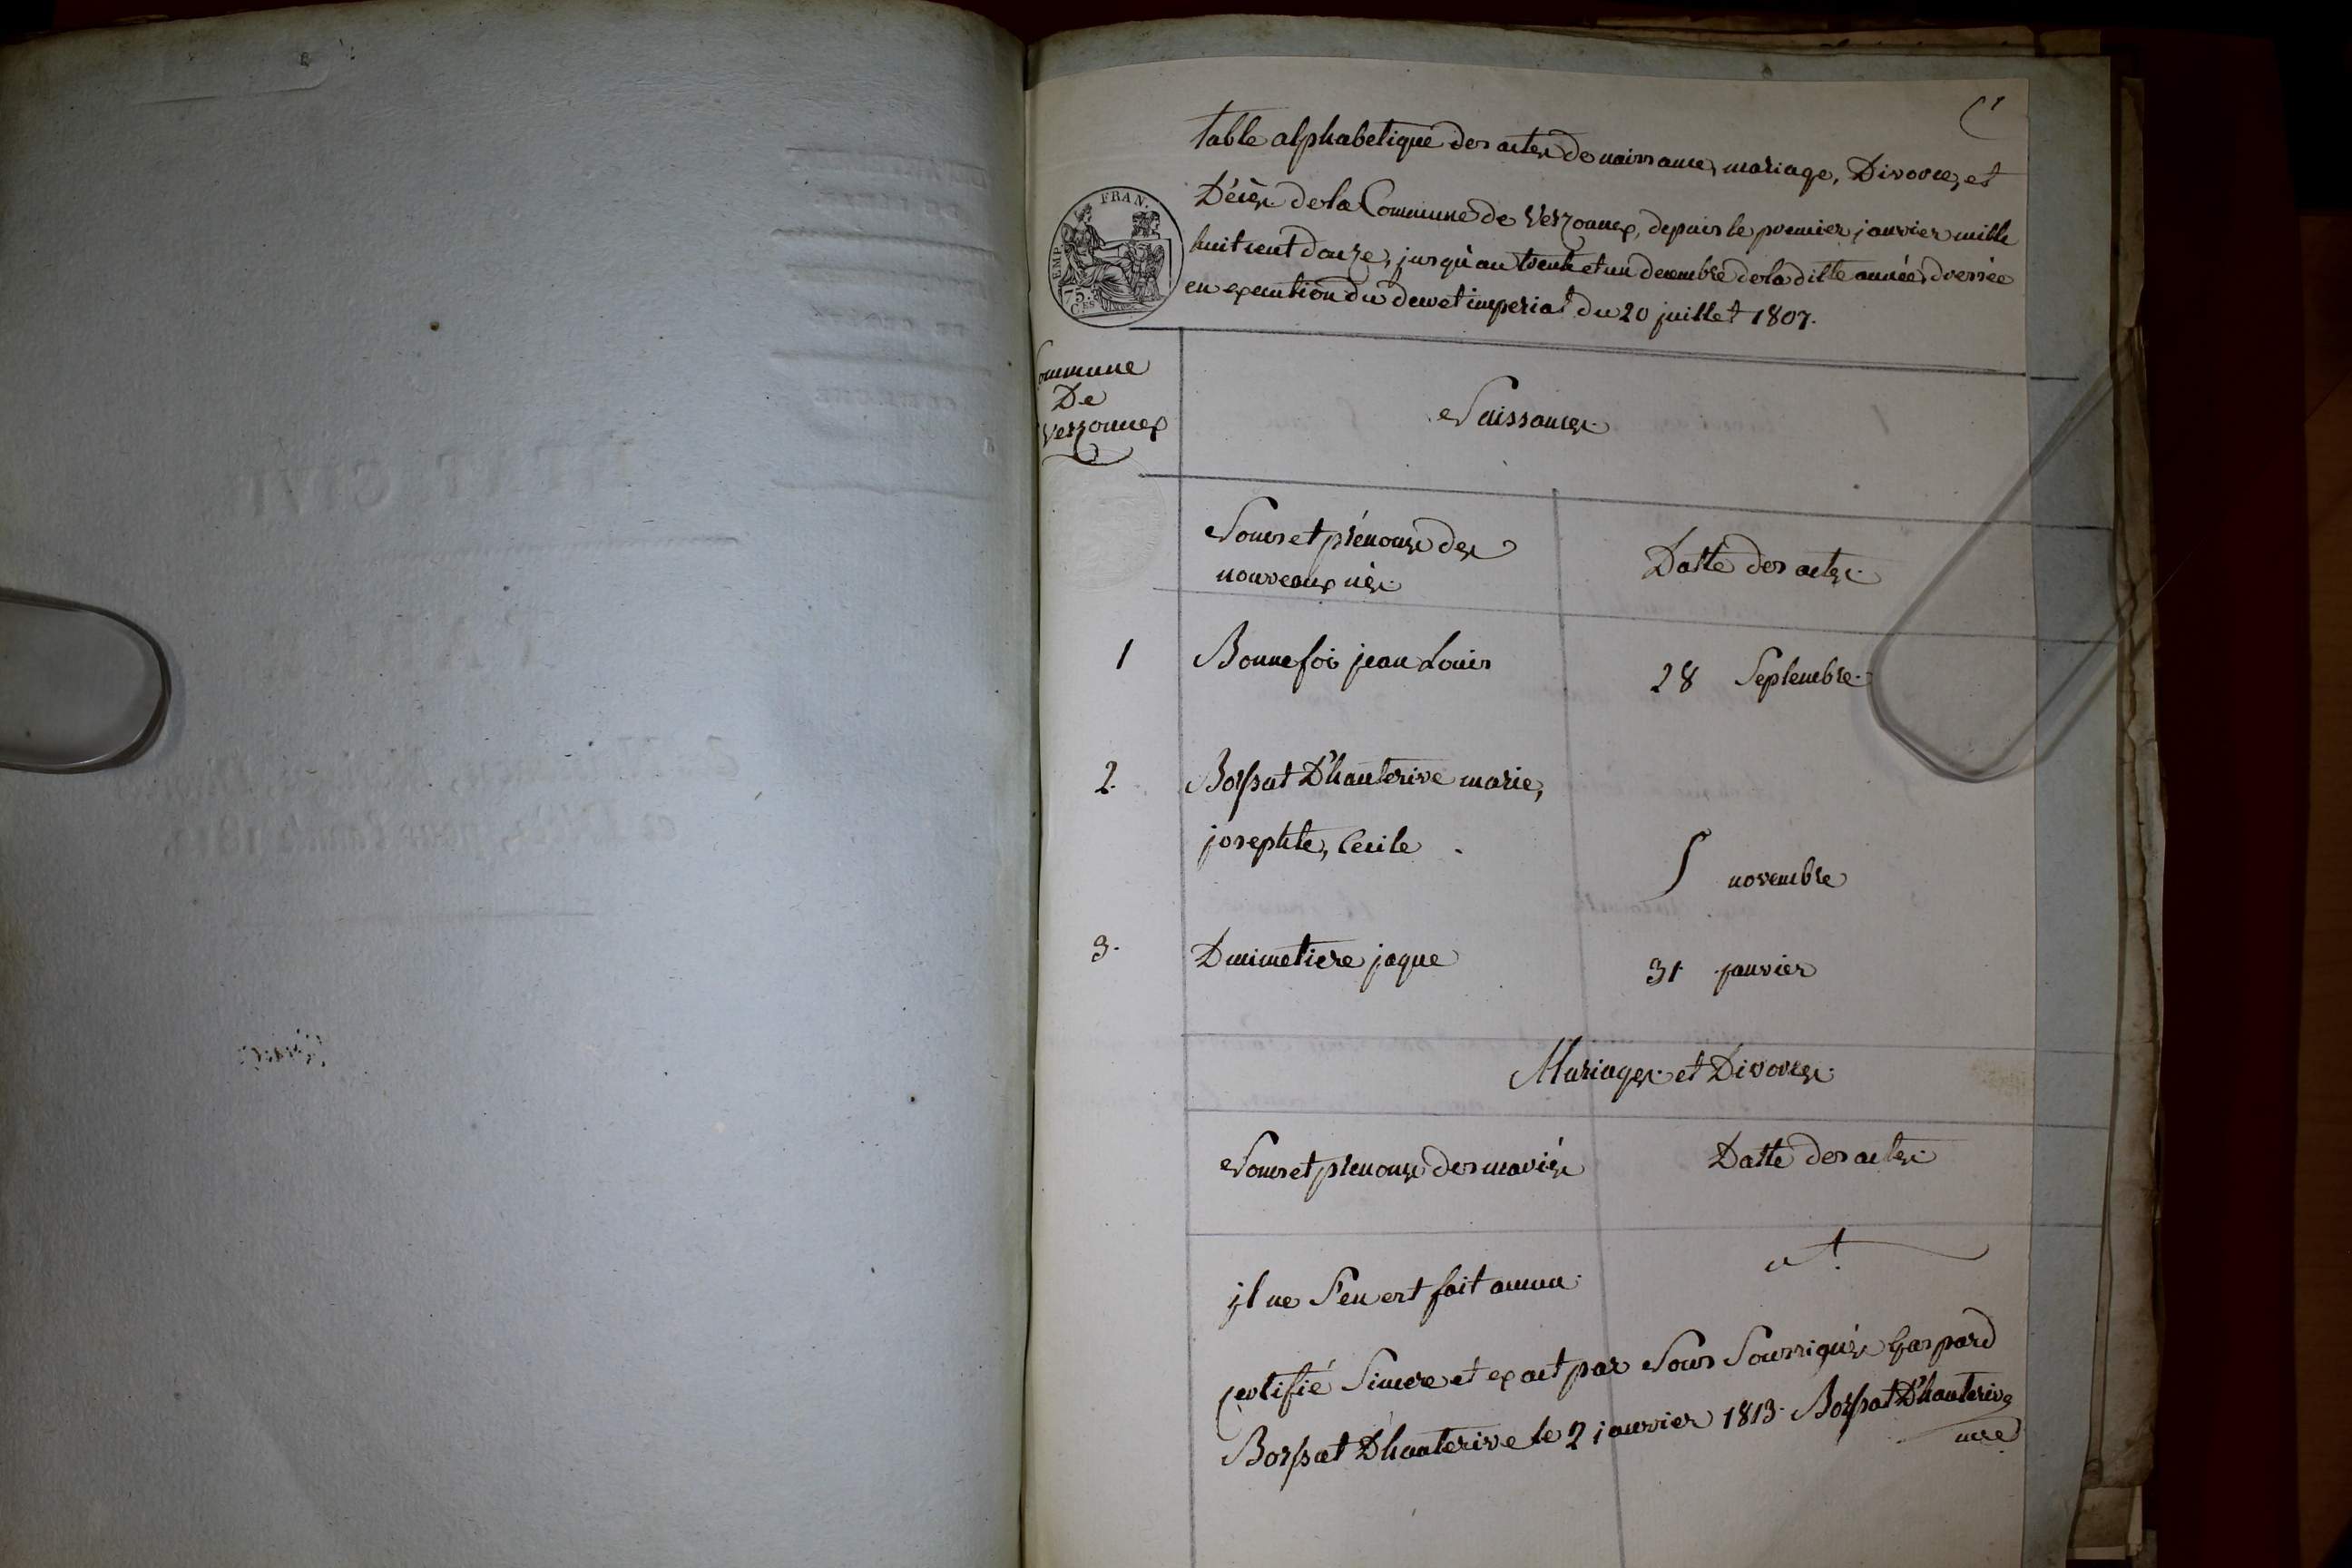 table alphabetique des actes de naissance, mariage, Divorce, et
Décès de la Commune de Versonnex, depuis le premier janvier mille
huit cent douze, jusqu'au trente et un decembre de la ditte année, dressée
en execution du decret imperial du 20 juillet 1807.
EMP. FRAN.
75.
C.ES
Commune
De
Versonnex
Naissances
Noms et prénoms des
nouveaux nés
Datte des actes
1 Bonnefoi jean Louis 28 Septembre
2. Borssat D'hauterive marie,
josephte, Cecile 5 novembre
3. Dumetiere jaque 31 janvier
Mariages et Divorces
Noms et prenoms des mariés Datte des actes
il ne S'en est fait aucun
certifié Sincere et exact par Nous Soussignés Gaspard
Borssat D'hauterive le 2 janvier 1813. Borssat D'hauterive